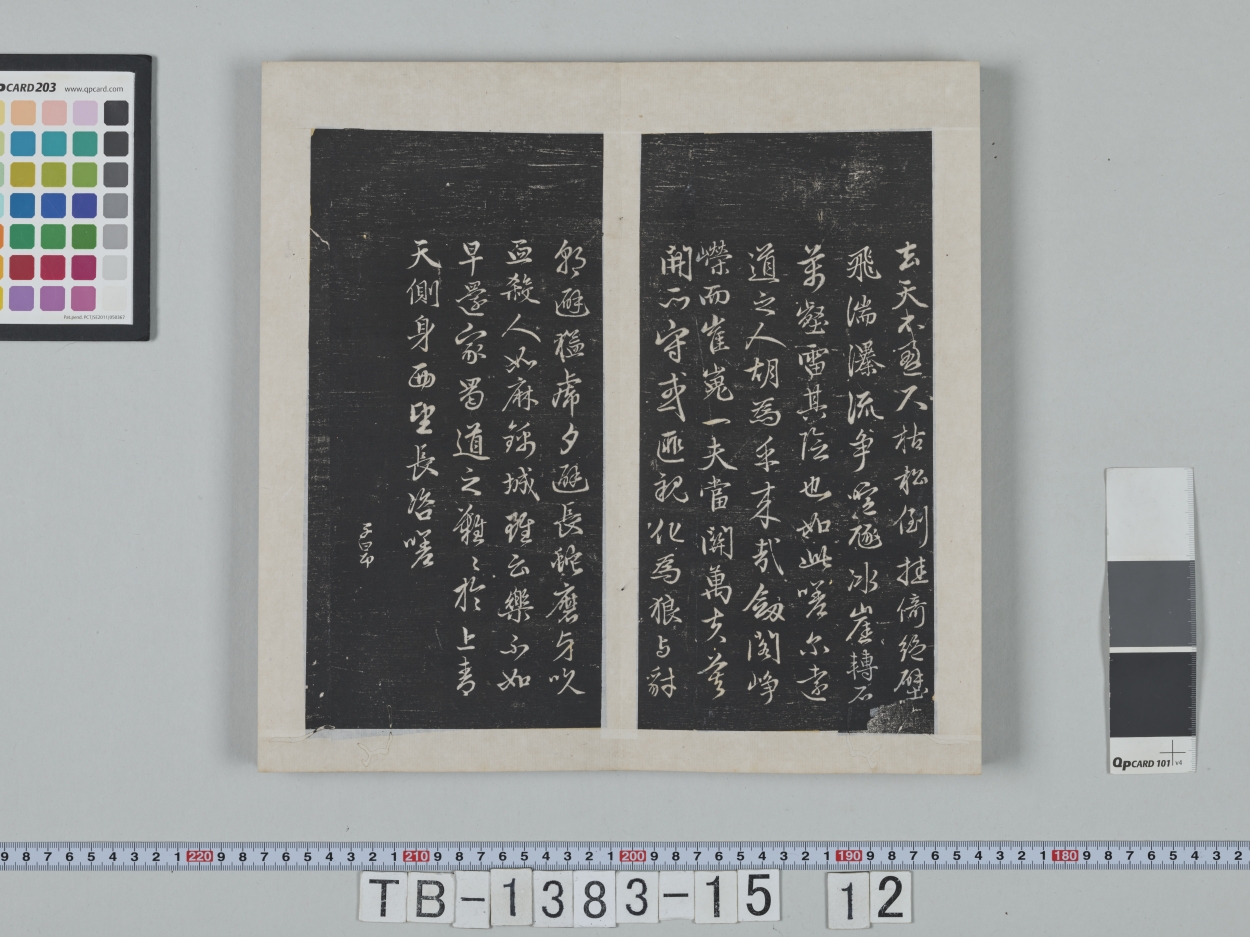 去天不盈尺枯松倒挂倚絕壁
飛湍瀑流爭喧豗冰崖轉石
萬壑雷其險也如此嗟尔遠
道之人胡為乎來哉劒閣崢
嶸而崔嵬一夫當關萬夫莫
開所守或匪親化為狼与豺
朝避猛虎夕避長蛇磨牙吮
血殺人如麻錦城雖云樂不如
早還家蜀道之難〻於上青
天側身西望長咨嗟
子昂
PCARD 203 www.qpcard.com
QPCARD 101 v4
9 8 7 6 5 4 3 2 1 220 9 8 7 6 5 4 3 2 1 210 9 8 7 6 5 4 3 2 1 200 9 8 7 6 5 4 3 2 1 190 9 8 7 6 5 4 3 2 1 180 9 8 7 6 5 4 3 2
TB-1383-15 12